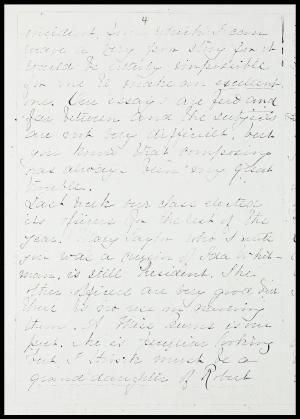 4
incident from which I can
weave a very fair story for it
would be utterly impossible
for me to make an excellent
one. Our essays are few and
far between and the subjects
are not very difficult but
you know that composing
has always been my great
trouble.
Last week our class elected
its officers for the rest of the
year. Mary Taylor who I wrote
you was a cousin of Ada Whit-
man, is still President. The
other officers are very good but
there is no use in naming
them. A Miss is our
She is peculiar looking
but I think must be a
grand daughter of Robert